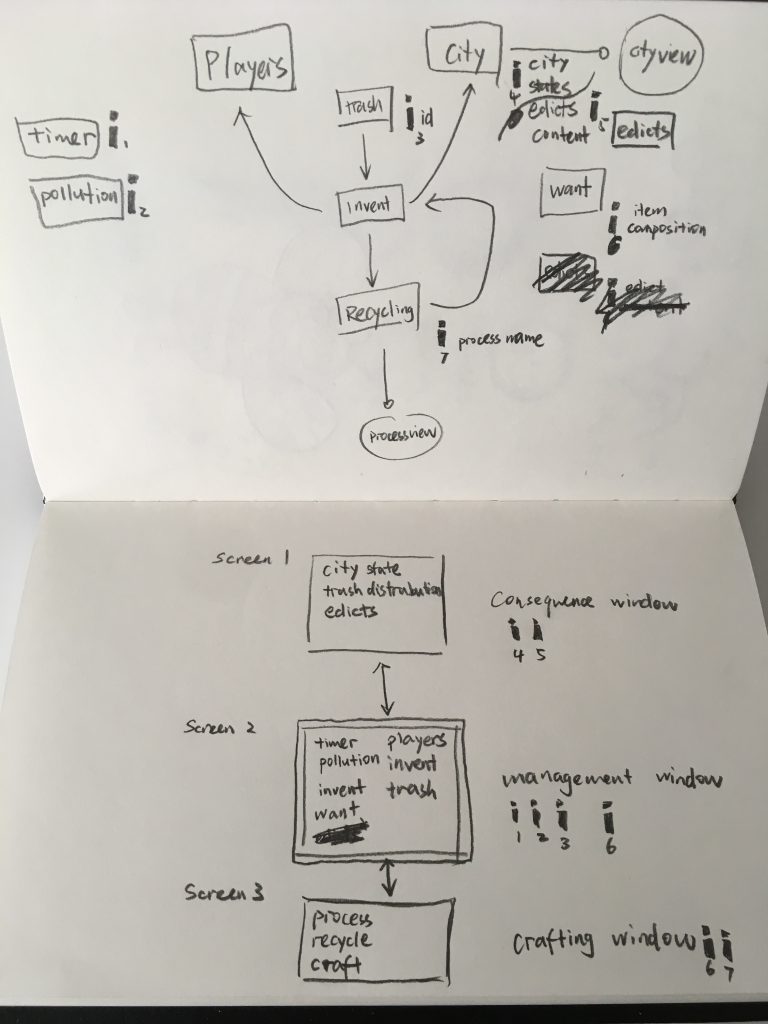 Players
City
cityview
trash
i id
3
i city
4 states
edicts
content
i
5
edicts
timer i1
pollution i2
invent
want
i item
6 canposition
Recycling
edict
i process name
7
processview
Screen 1
city state
trash distrabution
edicts
Consequence window
i i
4 5
Screen 2
timer players
pollution invent
invent trash
want
management window
i i i i
1 2 3 6
Screen 3
process
recycle
craft
Crafting window i i
6 7